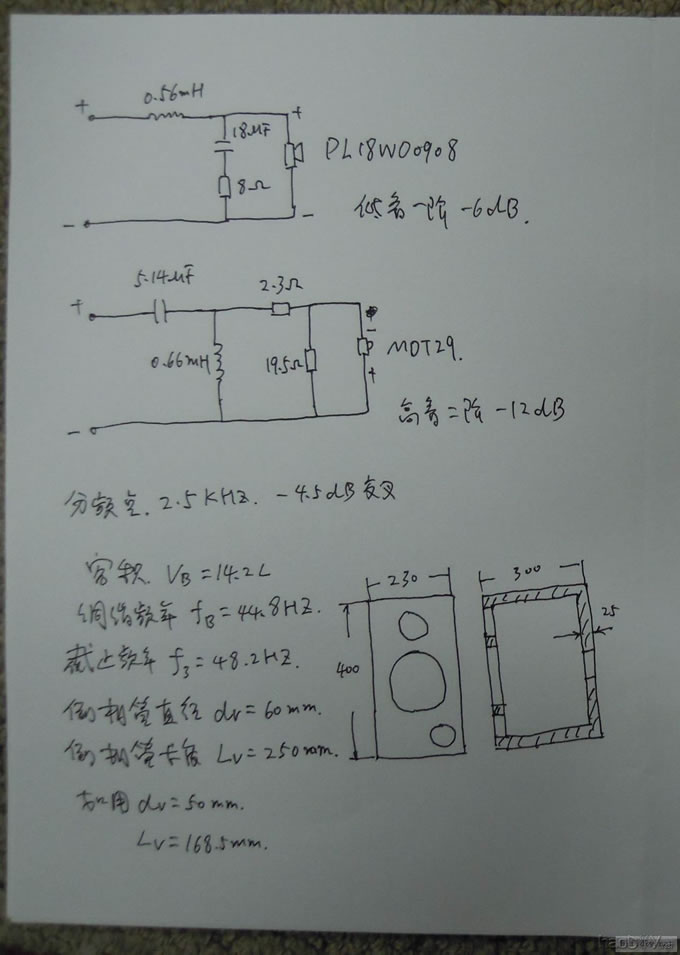 +
0.56mH
+
18μF
8Ω
DL18W00908
-
-
低音一阶 -6dB.
5.14μF
2.3Ω
+
0.66mH
19.5Ω
-
+
MDT29.
-
高音二阶 -12dB
分频点. 2.5KHZ. -4.5dB交叉
容积. VB=14.2L
调谐频率 fB=44.8HZ.
截止频率 f3=48.2HZ.
倒相管直径 dv=60mm.
倒相管长度 Lv=250mm.
如用 dv=50mm.
Lv=168.5mm.
230
300
400
25